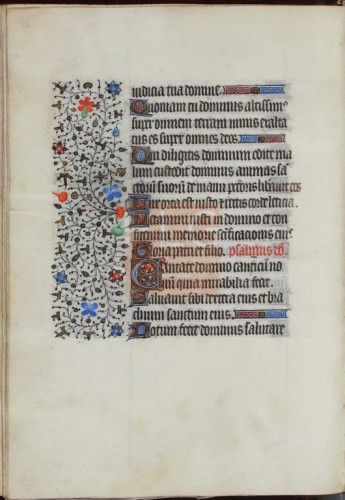 iudicia tua domine.
Quoniam tu dominus altissimus
super omnem terram nimis exalta
tus es super omnes deos.
Qui diligitis dominum odite ma
lum custodit dominus animas sa
ctorum suorum de manu peccatoris liberabit eos
Lux orta est iusto et rectis corde leticia.
Letamini iusti in domino et con
fitemini memorie sanctificacionis eius
Gloria patri et filio. psalmus
Cantate domino canticum no
uum quia mirabilia fecit.
Saluauit sibi dextera eius et bra
chium sanctum eius.
Notum fecit dominus salutare